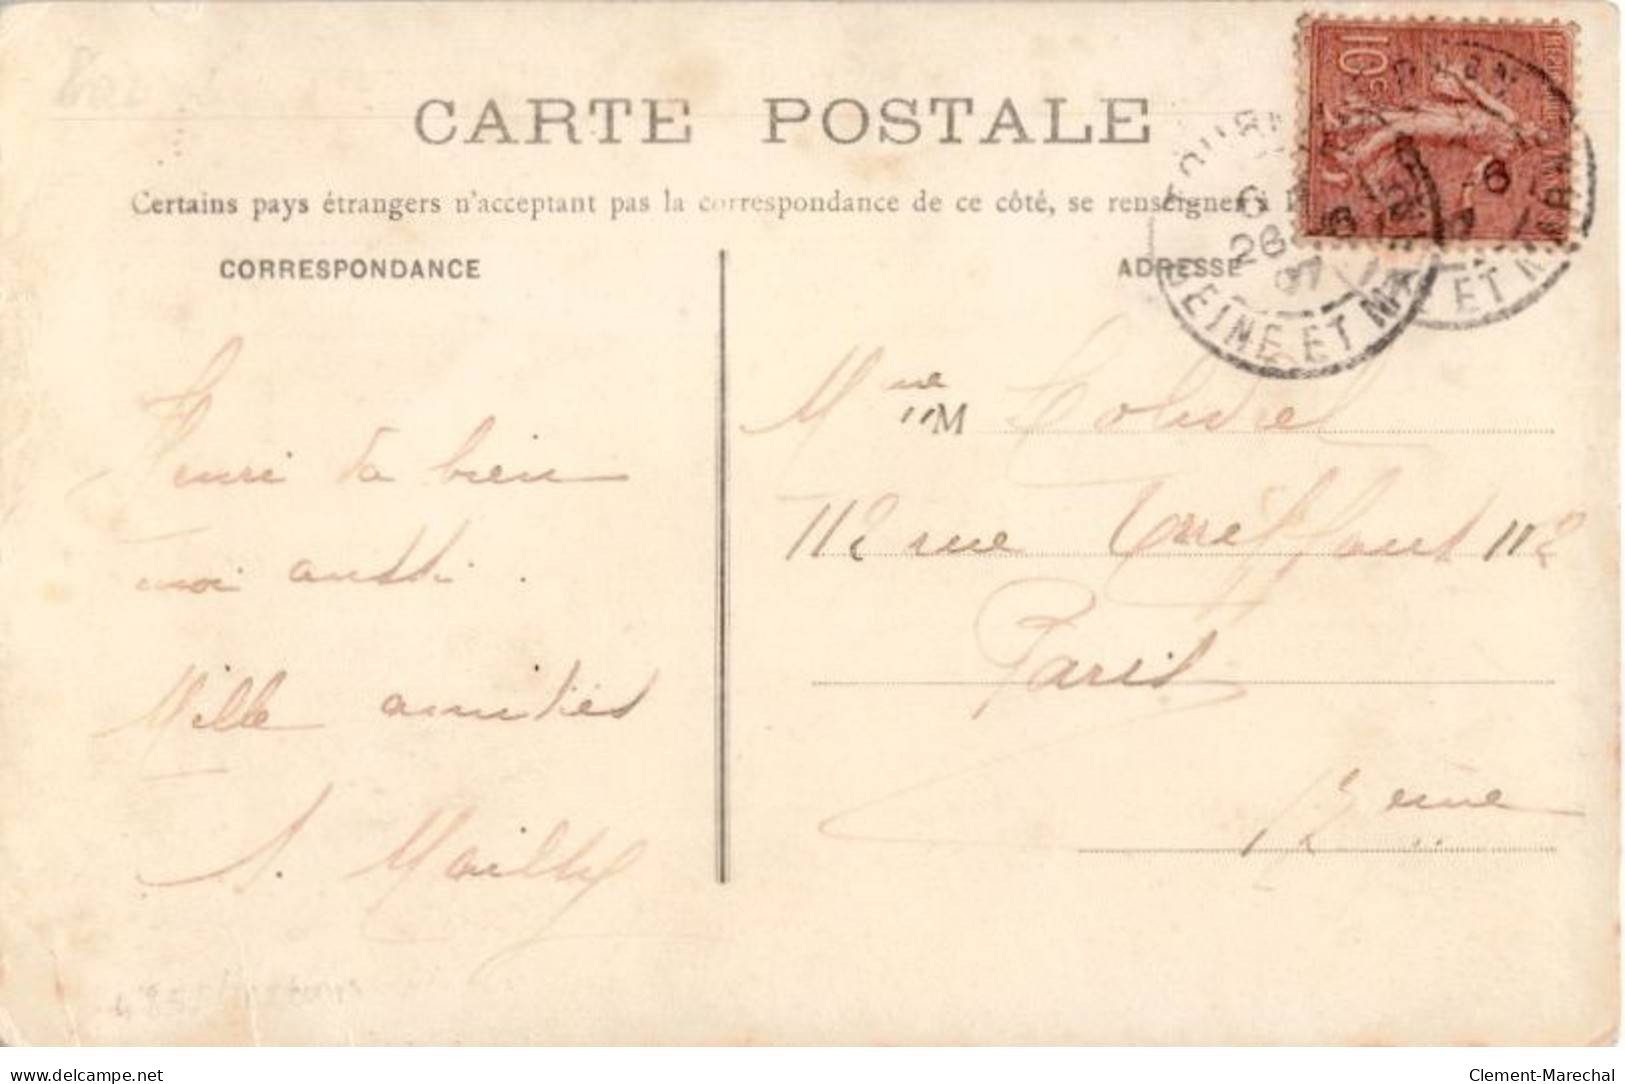 CARTE POSTALE
Certains pays étrangers n'acceptant pas la correspondance de ce côté, se renseigner à
CORRESPONDANCE
ADRESSE
10
26 - 6
07
SEINE ET MARNE
ET MARNE
Henri va bien
moi aussi.
Mille amitiés
S. Mailly
Mme M
112 rue 112
Paris
12 eme
delcampe.net
Clement-Marechal